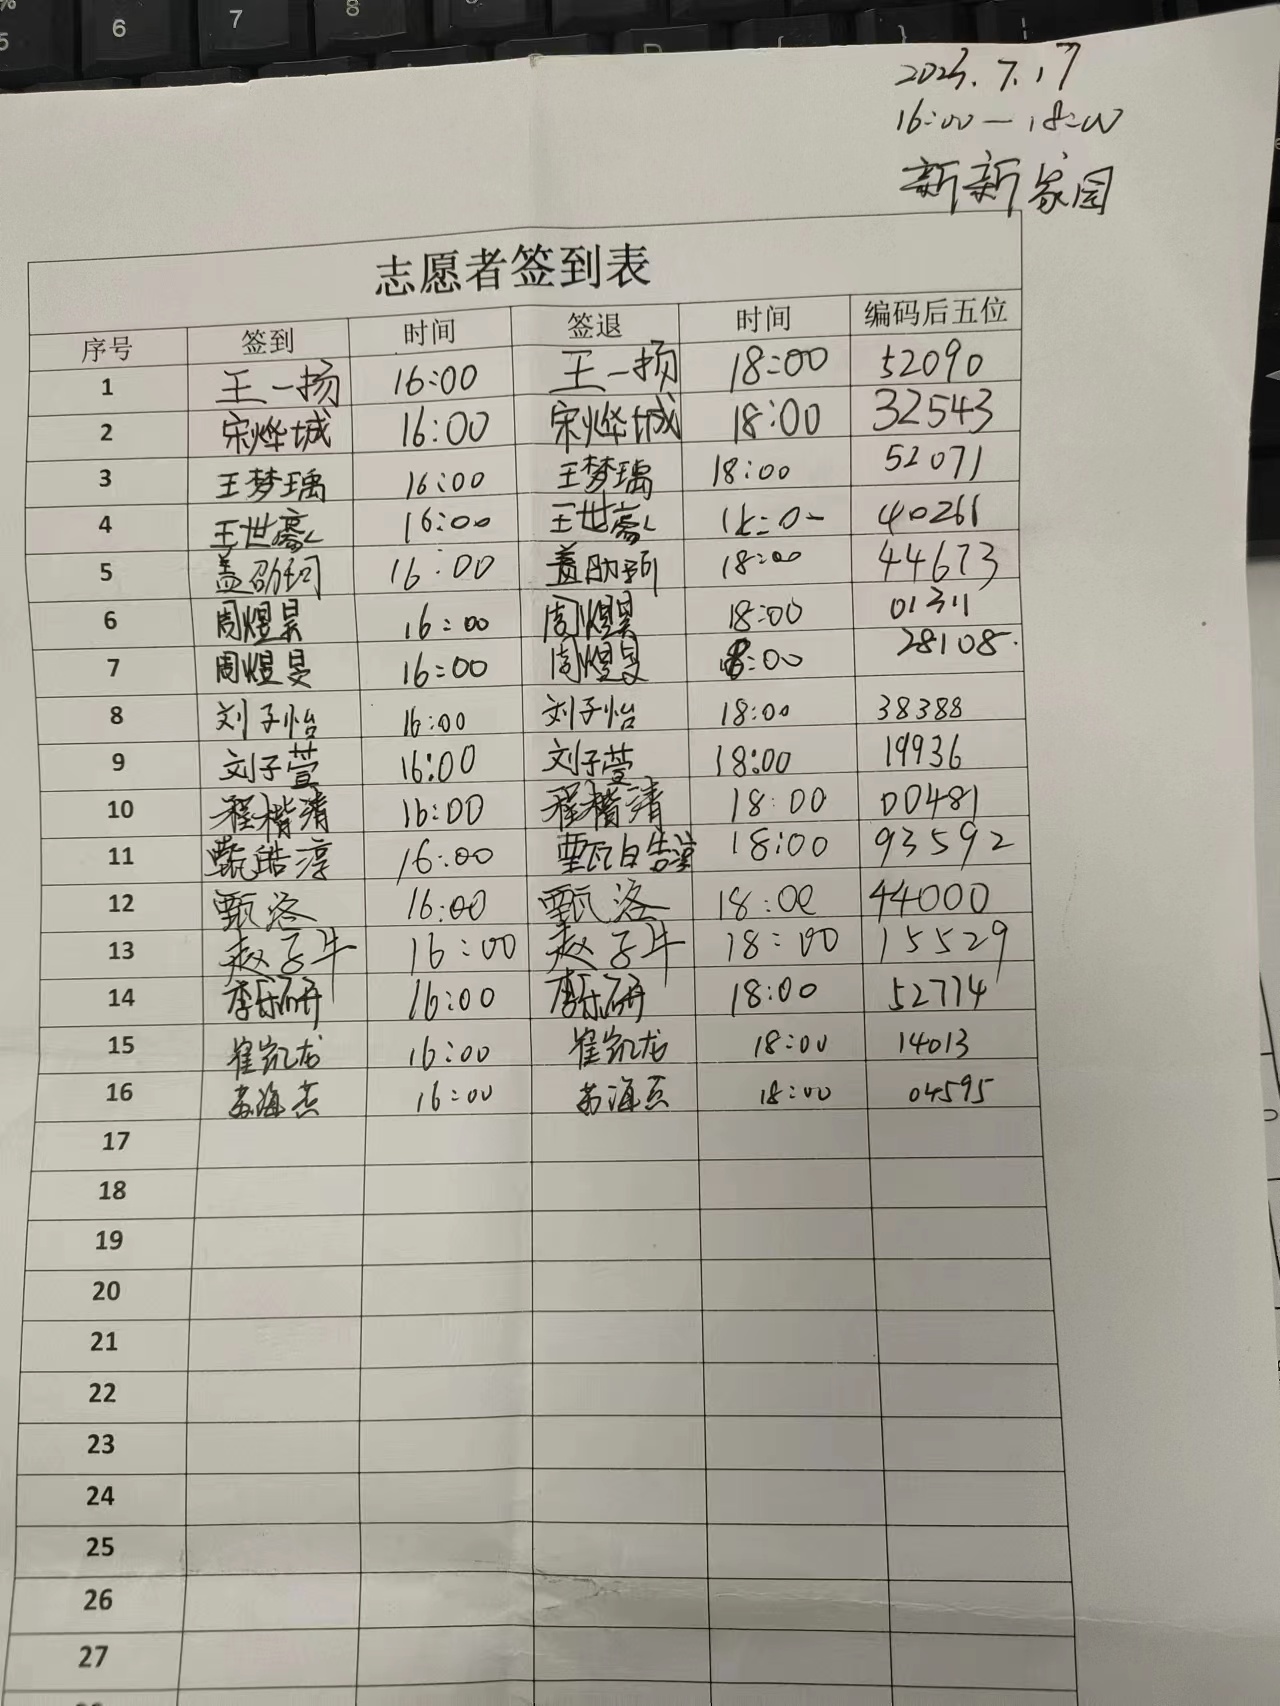 2023.7.17
16:00—18:00
新新家园
志愿者签到表
序号 签到 时间 签退 时间 编码后五位
1 王一扬 16:00 王一扬 18:00 52090
2 宋烨城 16:00 宋烨城 18:00 32543
3 王梦瑀 16:00 王梦瑀 18:00 52071
4 王世 16:00 王世 40261
5 盖劭珂 16:00 盖劭珂 18:00 44673
6 周煜昊 16:00 周煜昊 18:00 01311
7 周煜旻 16:00 周煜旻 18:00 28108.
8 刘子怡 16:00 刘子怡 18:00 38388
9 刘子萱 16:00 刘子萱 18:00 19936
10 程楷清 16:00 程楷清 18:00 00481
11 甄皓淳 16:00 甄皓淳 18:00 93592
12 甄洛 16:00 甄洛 18:00 44000
13 赵子牛 16:00 赵子牛 18:00 15529
14 李乐研 16:00 李乐研 18:00 52774
15 崔凯龙 16:00 崔凯龙 18:00 14013
16 苏海杰 16:00 苏海杰 18:00 04595
17
18
19
20
21
22
23
24
25
26
27